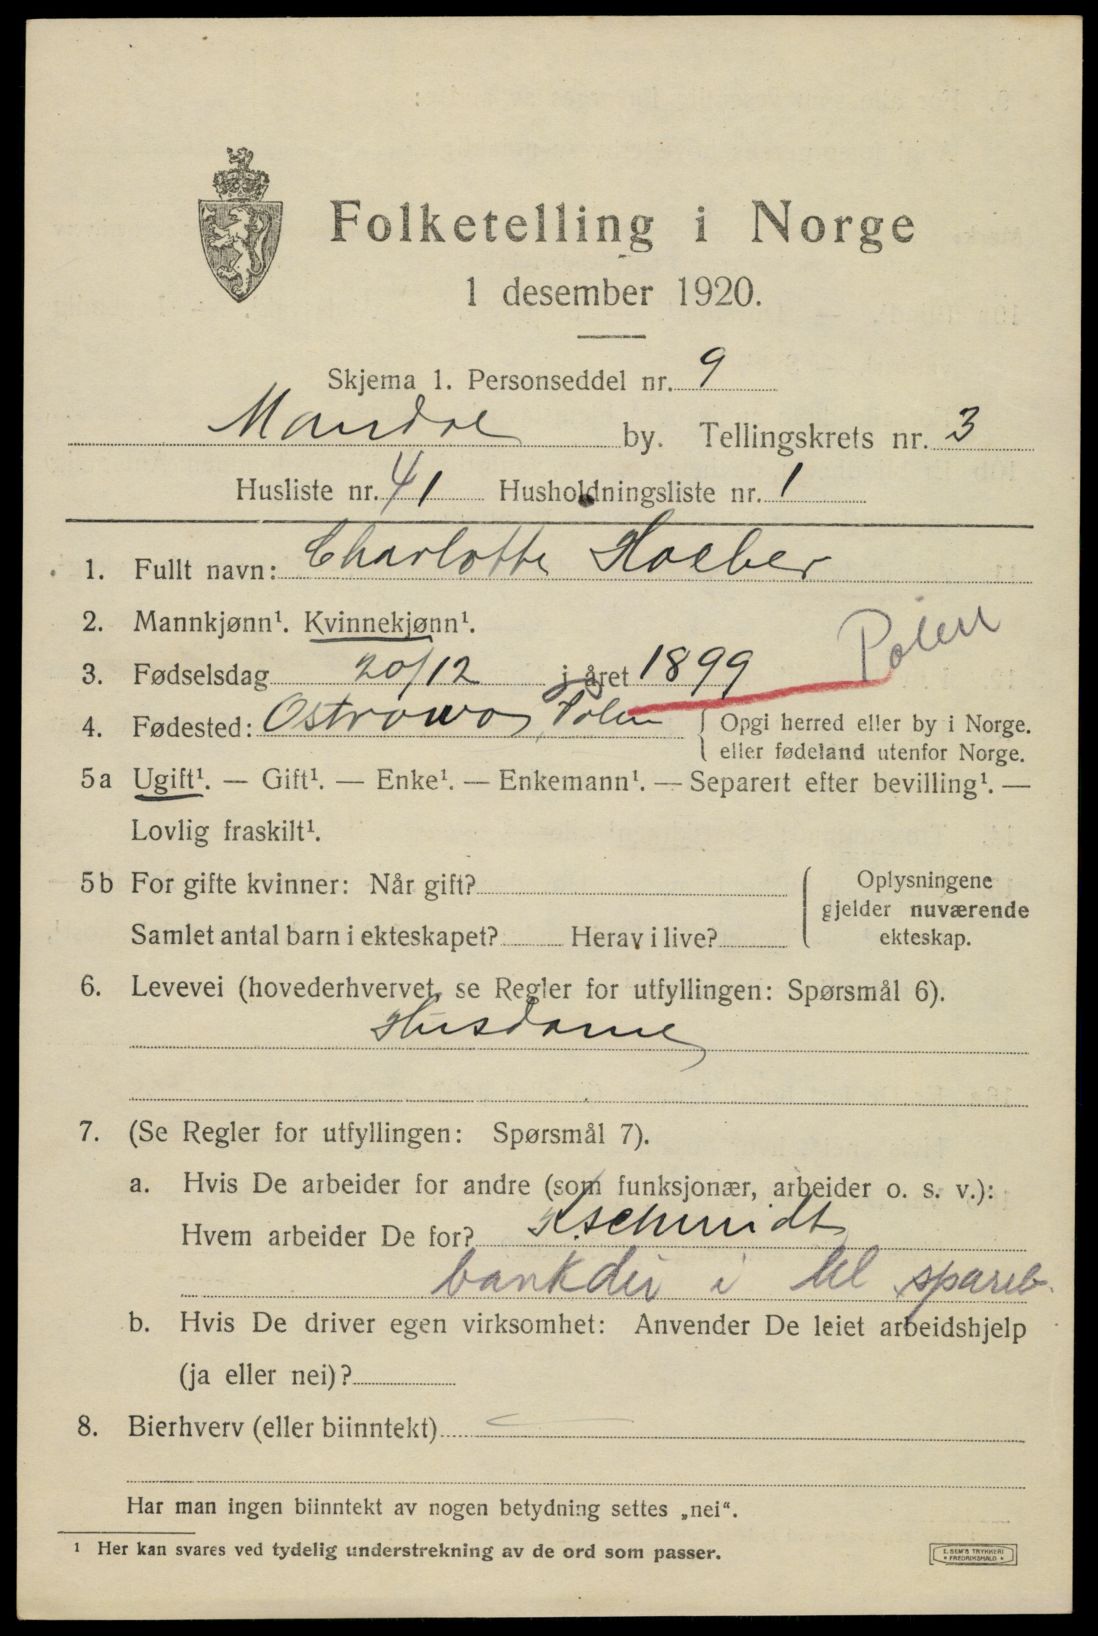 Folketelling i Norge
1 desember 1920.
Skjema 1. Personseddel nr. 9
Mandal by. Tellingskrets nr. 3
Husliste nr. 41 Husholdningsliste nr. 1
1. Fullt navn: Charlotte Hoeber
2. Mannkjønn¹. Kvinnekjønn¹.
3. Fødselsdag 20/12 i året 1899
Polen
4. Fødested: Ostrowo, Polen { Opgi herred eller by i Norge.
eller fødeland utenfor Norge.
5a Ugift¹. — Gift¹. — Enke¹. — Enkemann¹. — Separert efter bevilling¹. —
Lovlig fraskilt¹.
5b For gifte kvinner: Når gift?
Samlet antal barn i ekteskapet? Herav i live?
{ Oplysningene
gjelder nuværende
ekteskap.
6. Levevei (hovederhvervet, se Regler for utfyllingen: Spørsmål 6).
Husdame
7. (Se Regler for utfyllingen: Spørsmål 7).
a. Hvis De arbeider for andre (som funksjonær, arbeider o. s. v.):
Hvem arbeider De for? K. schmidt
bankdir i spareb.
b. Hvis De driver egen virksomhet: Anvender De leiet arbeidshjelp
(ja eller nei)?
8. Bierhverv (eller biinntekt) —
Har man ingen biinntekt av nogen betydning settes „nei“.
¹ Her kan svares ved tydelig understrekning av de ord som passer.
E. SEM'S TRYKKERI
• FREDRIKSHALD •